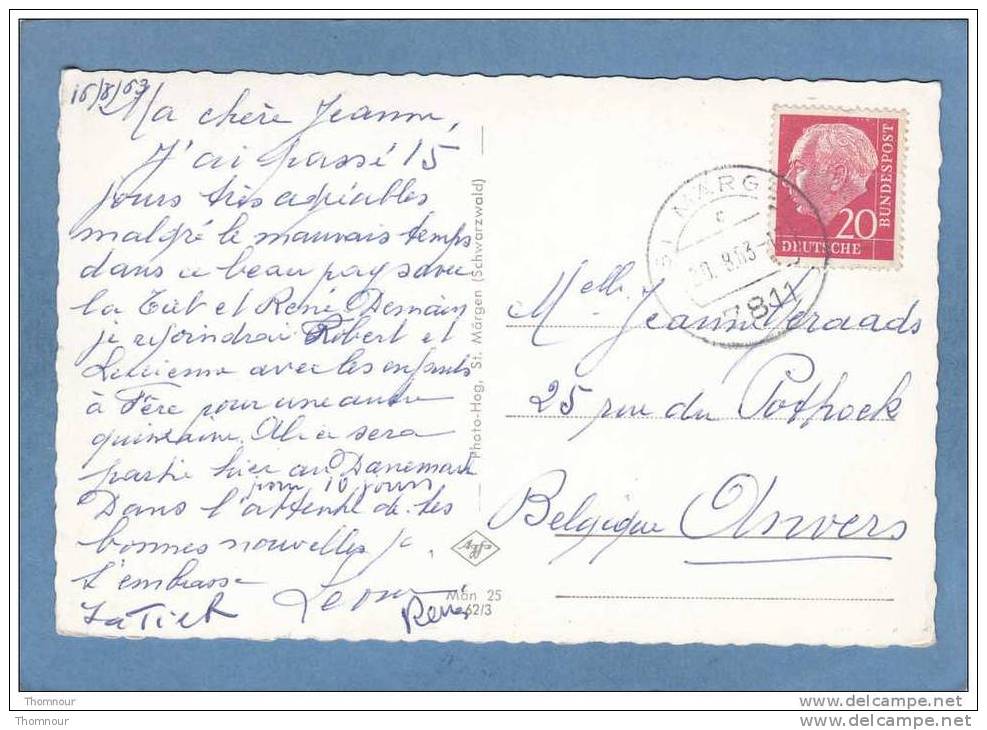 16/8/63
Ma chère Jeanne,
J'ai passé 15
jours très agréables
malgré le mauvais temps
dans ce beau pays avec
la Tiet et René Demain
je rejoindrai Robert et
Lucienne avec les enfants
à Fère pour une autre
quinzaine. Alice sera
partie hier au Danemark
pour 10 jours
Dans l'attente de tes
bonnes nouvelles je
t'embrasse
La Tiet
René
Photo-Hog, St. Märgen (Schwarzwald)
Agfa
Män 25
62/3
ST. MÄRGEN
c
20.8.63
7811
20
DEUTSCHE
BUNDESPOST
Melle Jeanne Veraads
25 rue du Pothoek
Belgique Anvers
Thomnour
Thomnour
www.delcampe.net
www.delcampe.net